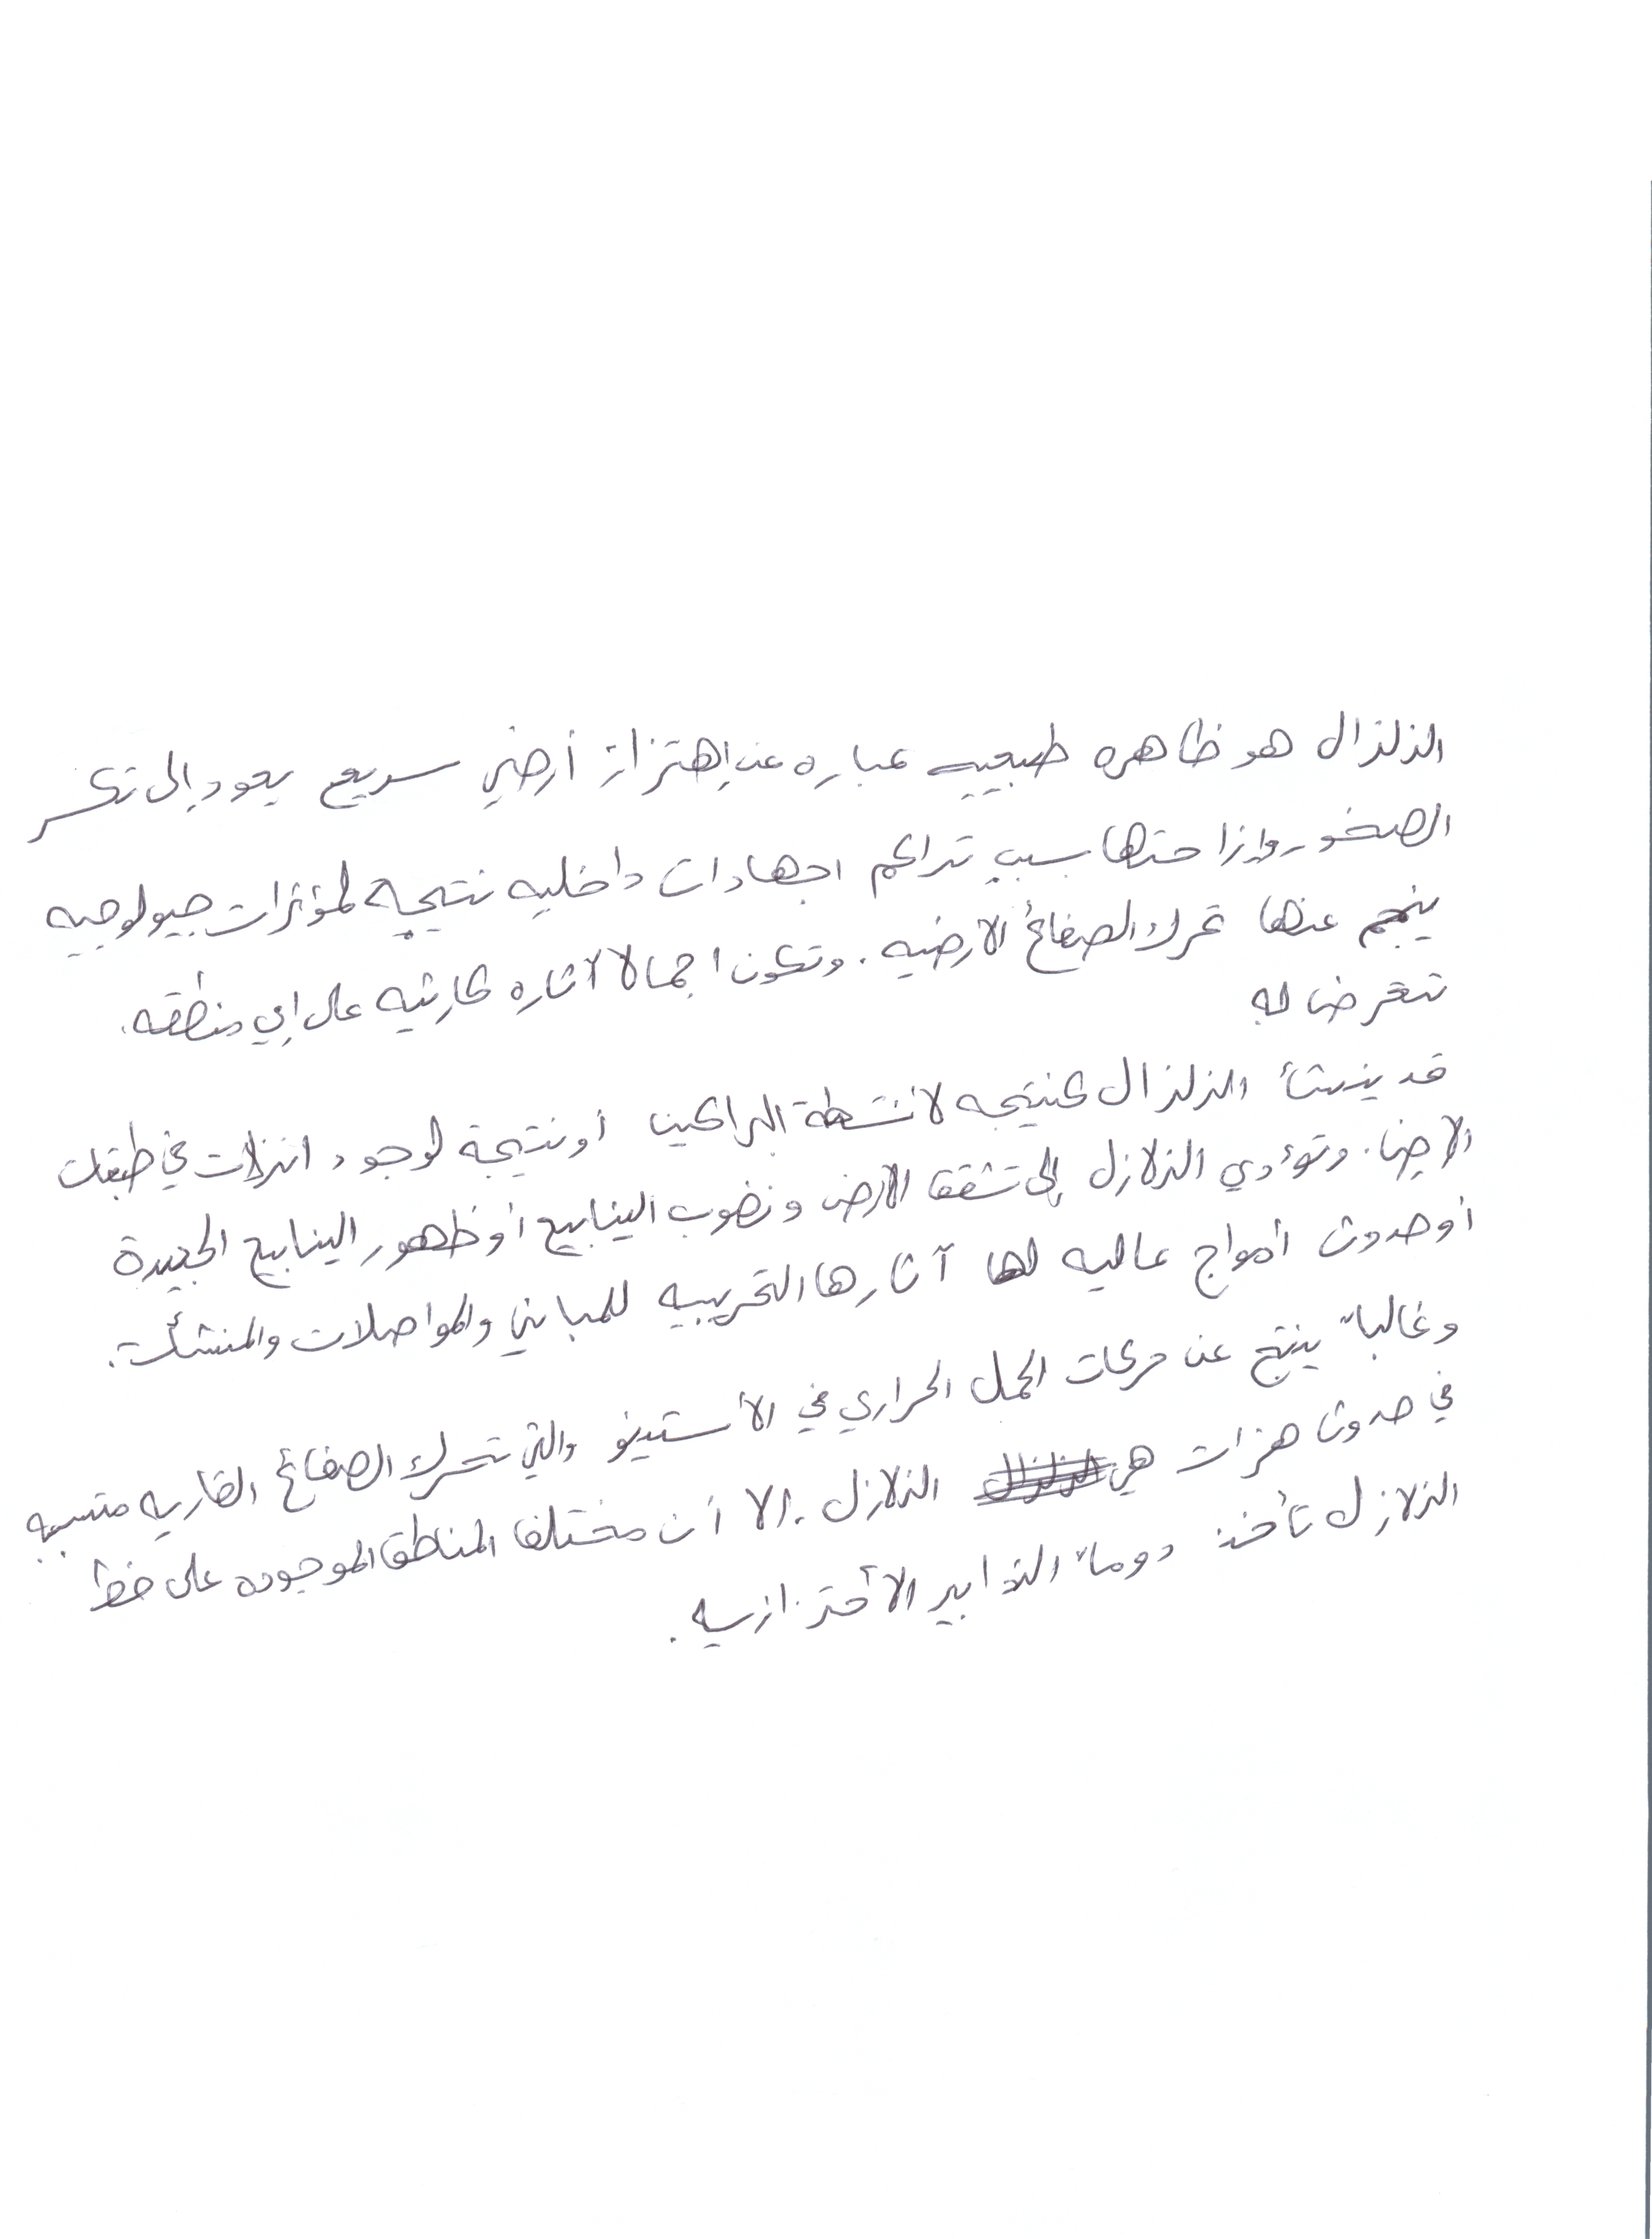 الزلزال هو ظاهره طبيعيه عباره عن إهتزاز أرضي سريع يعود إلى تكسر
الصخور وإزاحتها بسبب تراكم اجهادات داخليه نتيجه لمؤثرات جيولوجيه
ينجم عنها تحرك الصفائح الأرضيه. وتكون اجمالا آثاره كارثيه على اي منطقه.
تتعرض له
قد ينشأ الزلزال كنتيجه لأنشطة البراكين أو نتيجة لوجود انزلات في طبقات
الارض. وتؤدي الزلازل إلى تشقق الأرض ونضوب الينابيع أو ظهور الينابيع الجديدة
أو حدوث أمواج عاليه لها آثارها التخريبيه للمباني والمواصلات والمنشأت.
وغالباً ينتج عن حركات الحمل الحراري في الأستينو والتي تحرك الصفائح القاريه متسببه
في حدوث هزات هي الزلازل. إلا أن مختلف المناطق الموجوده على خط
الزلازل تأخذ دوماً التدابير الأحترازيه.